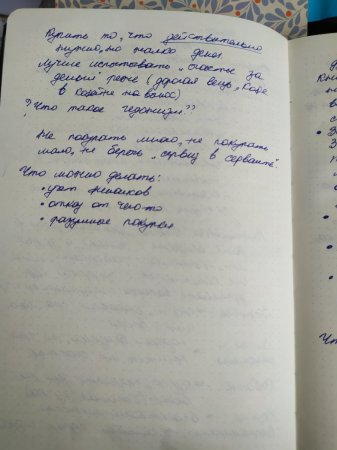 Купить то, что действительно
нужно, но жалко денег
лучше использовать "счастье за
деньги" реже (дорогая вещь, кофе
в кафе на вынос)
"Что такое гедонизм?"
Не покупать много, не покупать
мало, не беречь "сервиз в серванте"
Что можно делать:
• учёт финансов
• отказ от чего-то
• разумные покупки
Что